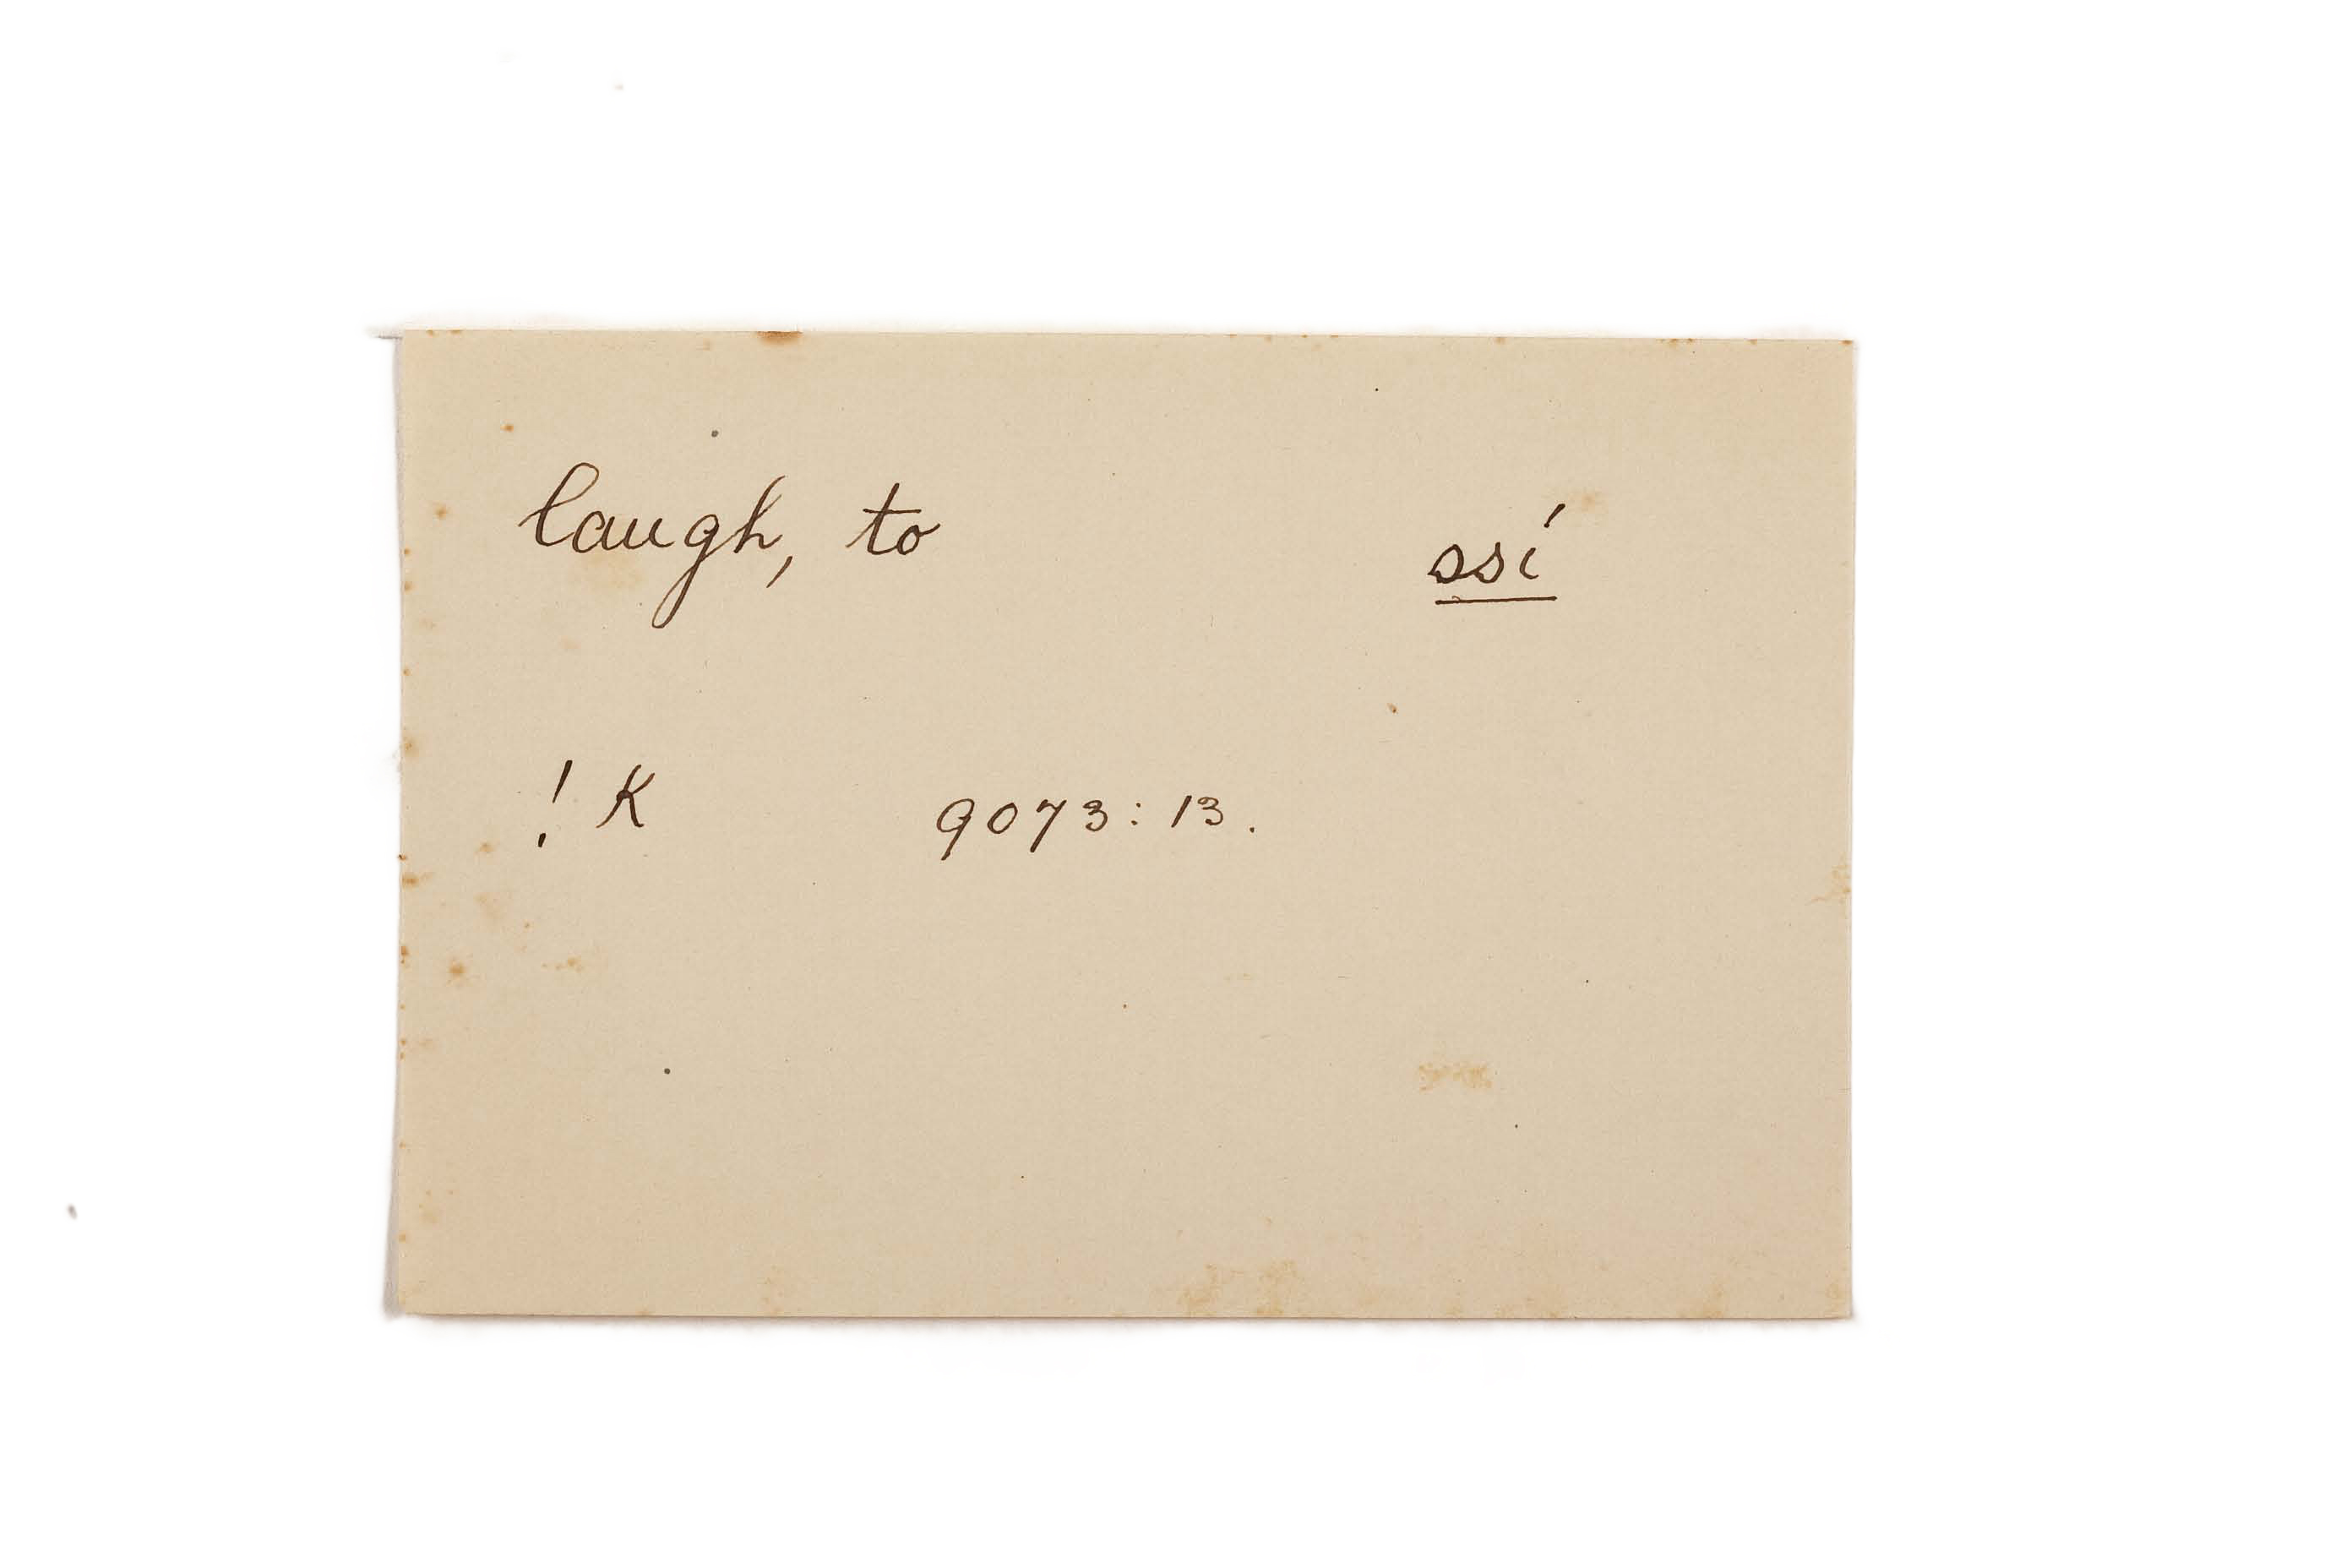 laugh, to ssí
! K 9073: 13.